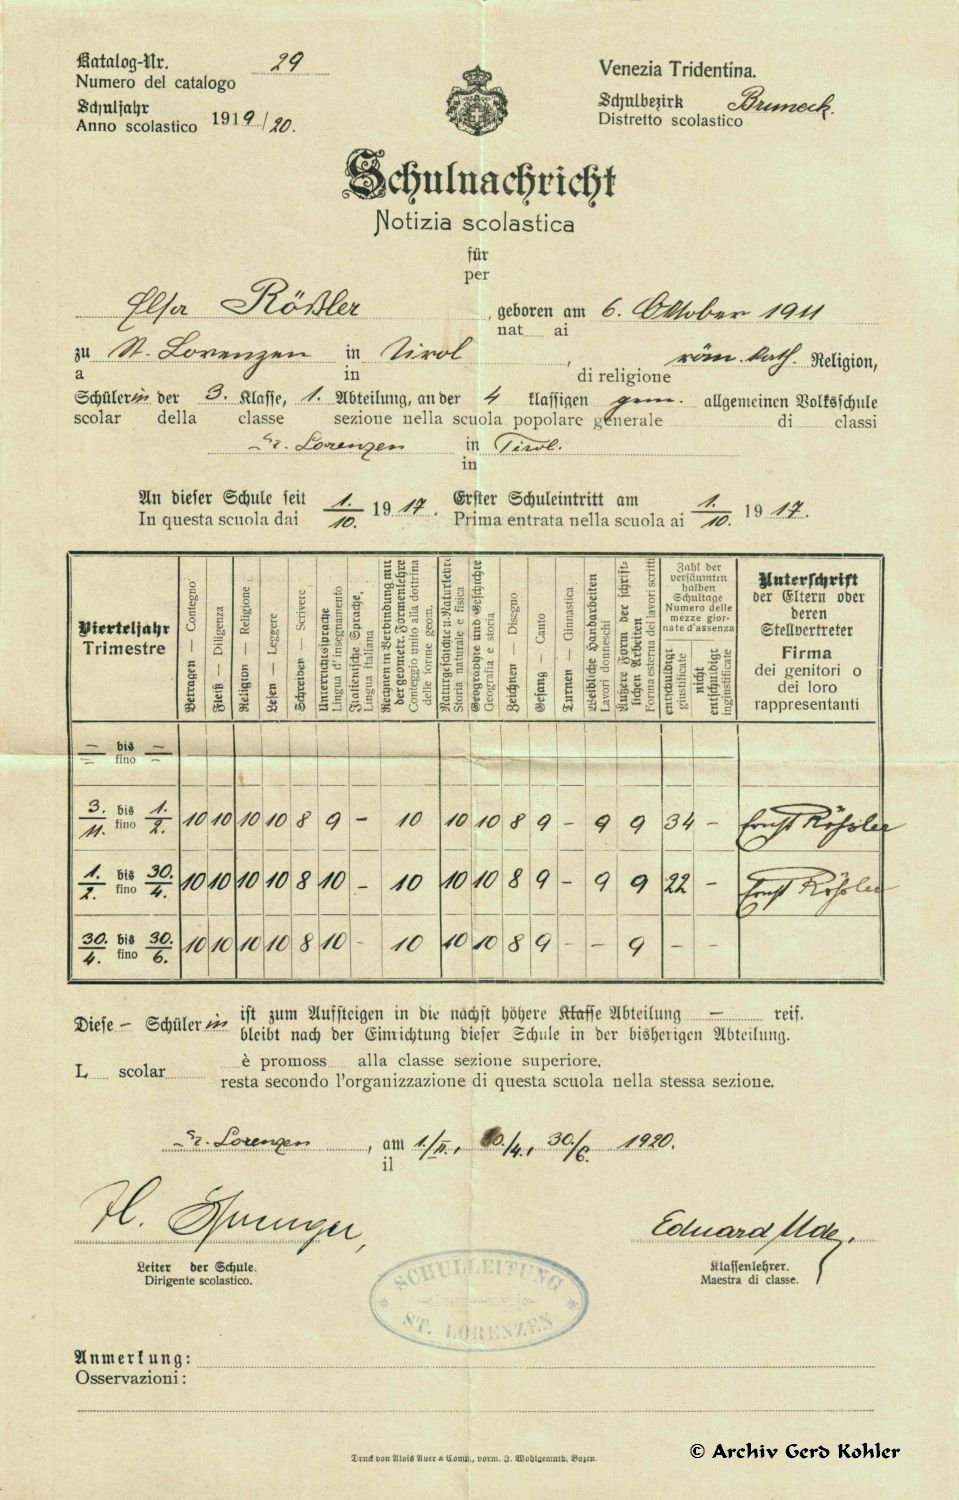 Katalog-Nr. 29
Numero del catalogo
Schuljahr
Anno scolastico 1919/20.
Venezia Tridentina.
Schulbezirk Bruneck.
Distretto scolastico
Schulnachricht
Notizia scolastica
für
per
Elsa Rößler, geboren am 6. Oktober 1911
nat ai
zu St. Lorenzen in Tirol, röm. kath. Religion,
a in di religione
Schülerin der 3. Klasse, 1. Abteilung, an der 4 klassigen gem. allgemeinen Volksschule
scolar della classe sezione nella scuola popolare generale di classi
St. Lorenzen in Tirol.
in
An dieser Schule seit 1./10. 1917. Erster Schuleintritt am 1./10. 1917.
In questa scuola dai Prima entrata nella scuola ai
Vierteljahr
Trimestre
Betragen — Contegno
Fleiß — Diligenza
Religion — Religione
Lesen — Leggere
Schreiben — Scrivere
Unterrichtssprache
Lingua d'insegnamento
Italienische Sprache,
Lingua italiana
Rechnen in Verbindung mit
der geometr. Formenlehre
Conteggio unito alla dottrina
delle forme geom.
Naturgeschichte u. Naturlehre
Storia naturale e fisica
Geographie und Geschichte
Geografia e storia
Zeichnen — Disegno
Gesang — Canto
Turnen — Ginnastica
Weibliche Handarbeiten
Lavori donneschi
Äußere Form der schrift-
lichen Arbeiten
Forma esterna dei lavori scritti
Zahl der
versäumten
halben
Schultage
Numero delle
mezze gior-
nate d'assenza
entschuldigt
giustificate
nicht
entschuldigt
ingiustificate
Unterschrift
der Eltern oder
deren
Stellvertreter
Firma
dei genitori o
dei loro
rappresentanti
— bis —
fino
3./11. bis 1./2. 10 10 10 10 8 9 – 10 10 10 8 9 – 9 9 34 – Ernst Rößler
fino
1./2. bis 30./4. 10 10 10 10 8 10 – 10 10 10 8 9 – 9 9 22 – Ernst Rößler
fino
30./4. bis 30./6. 10 10 10 10 8 10 - 10 10 10 8 9 – – 9 – –
fino
Diese – Schülerin ist zum Aufsteigen in die nächst höhere Klasse Abteilung — reif.
bleibt nach der Einrichtung dieser Schule in der bisherigen Abteilung.
L scolar è promoss alla classe sezione superiore.
resta secondo l'organizzazione di questa scuola nella stessa sezione.
St. Lorenzen, am 1./II., 30./4., 30./6. 1920.
il
H.
Eduard
Leiter der Schule.
Dirigente scolastico.
Klassenlehrer.
Maestra di classe.
SCHULLEITUNG
ST. LORENZEN
Anmerkung:
Osservazioni:
Druck von Alois Auer & Comp., vorm. J. Wohlgemuth, Bozen.
© Archiv Gerd Kohler